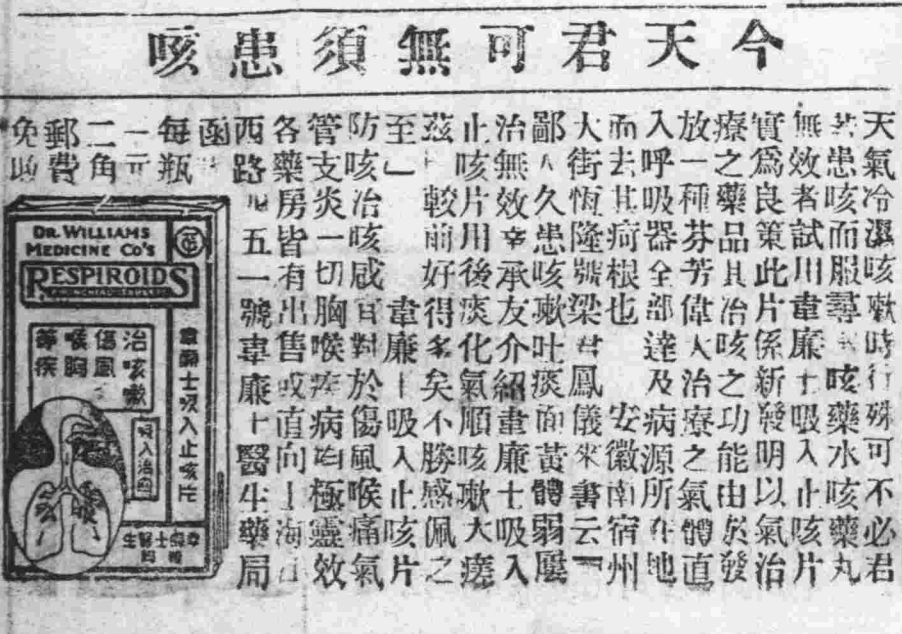 今天君可無須患咳
天氣冷濕咳嗽時行殊可不必君
若患咳而服尋咳藥水咳藥丸
無效者試用韋廉士吸入止咳片
實爲良策此片係新發明以氣治
療之藥品其治咳之功能由於發
放一種芬芳偉大治療之氣體直
入呼吸器全部達及病源所在地
而去其病根也 安徽南宿州
大街恆隆號梁君鳳儀來書云
鄙人久患咳嗽吐痰面黃體弱屢
治無效幸承友介紹韋廉士吸入
止咳片用後痰化氣順咳嗽大瘥
茲較前好得多矣不勝感佩之
至」 韋廉士吸入止咳片
防咳治咳咸宜對於傷風喉痛氣
管支炎一切胸喉疾病均極靈效
各藥房皆有出售或直向上海江
西路五一號韋廉士醫生藥局
函
每瓶
一元
二角
郵費
免
DR. WILLIAMS
MEDICINE CO'S
RESPIROIDS
韋廉士吸入止咳片
治咳嗽
傷風
喉胸
等疾
吸入治